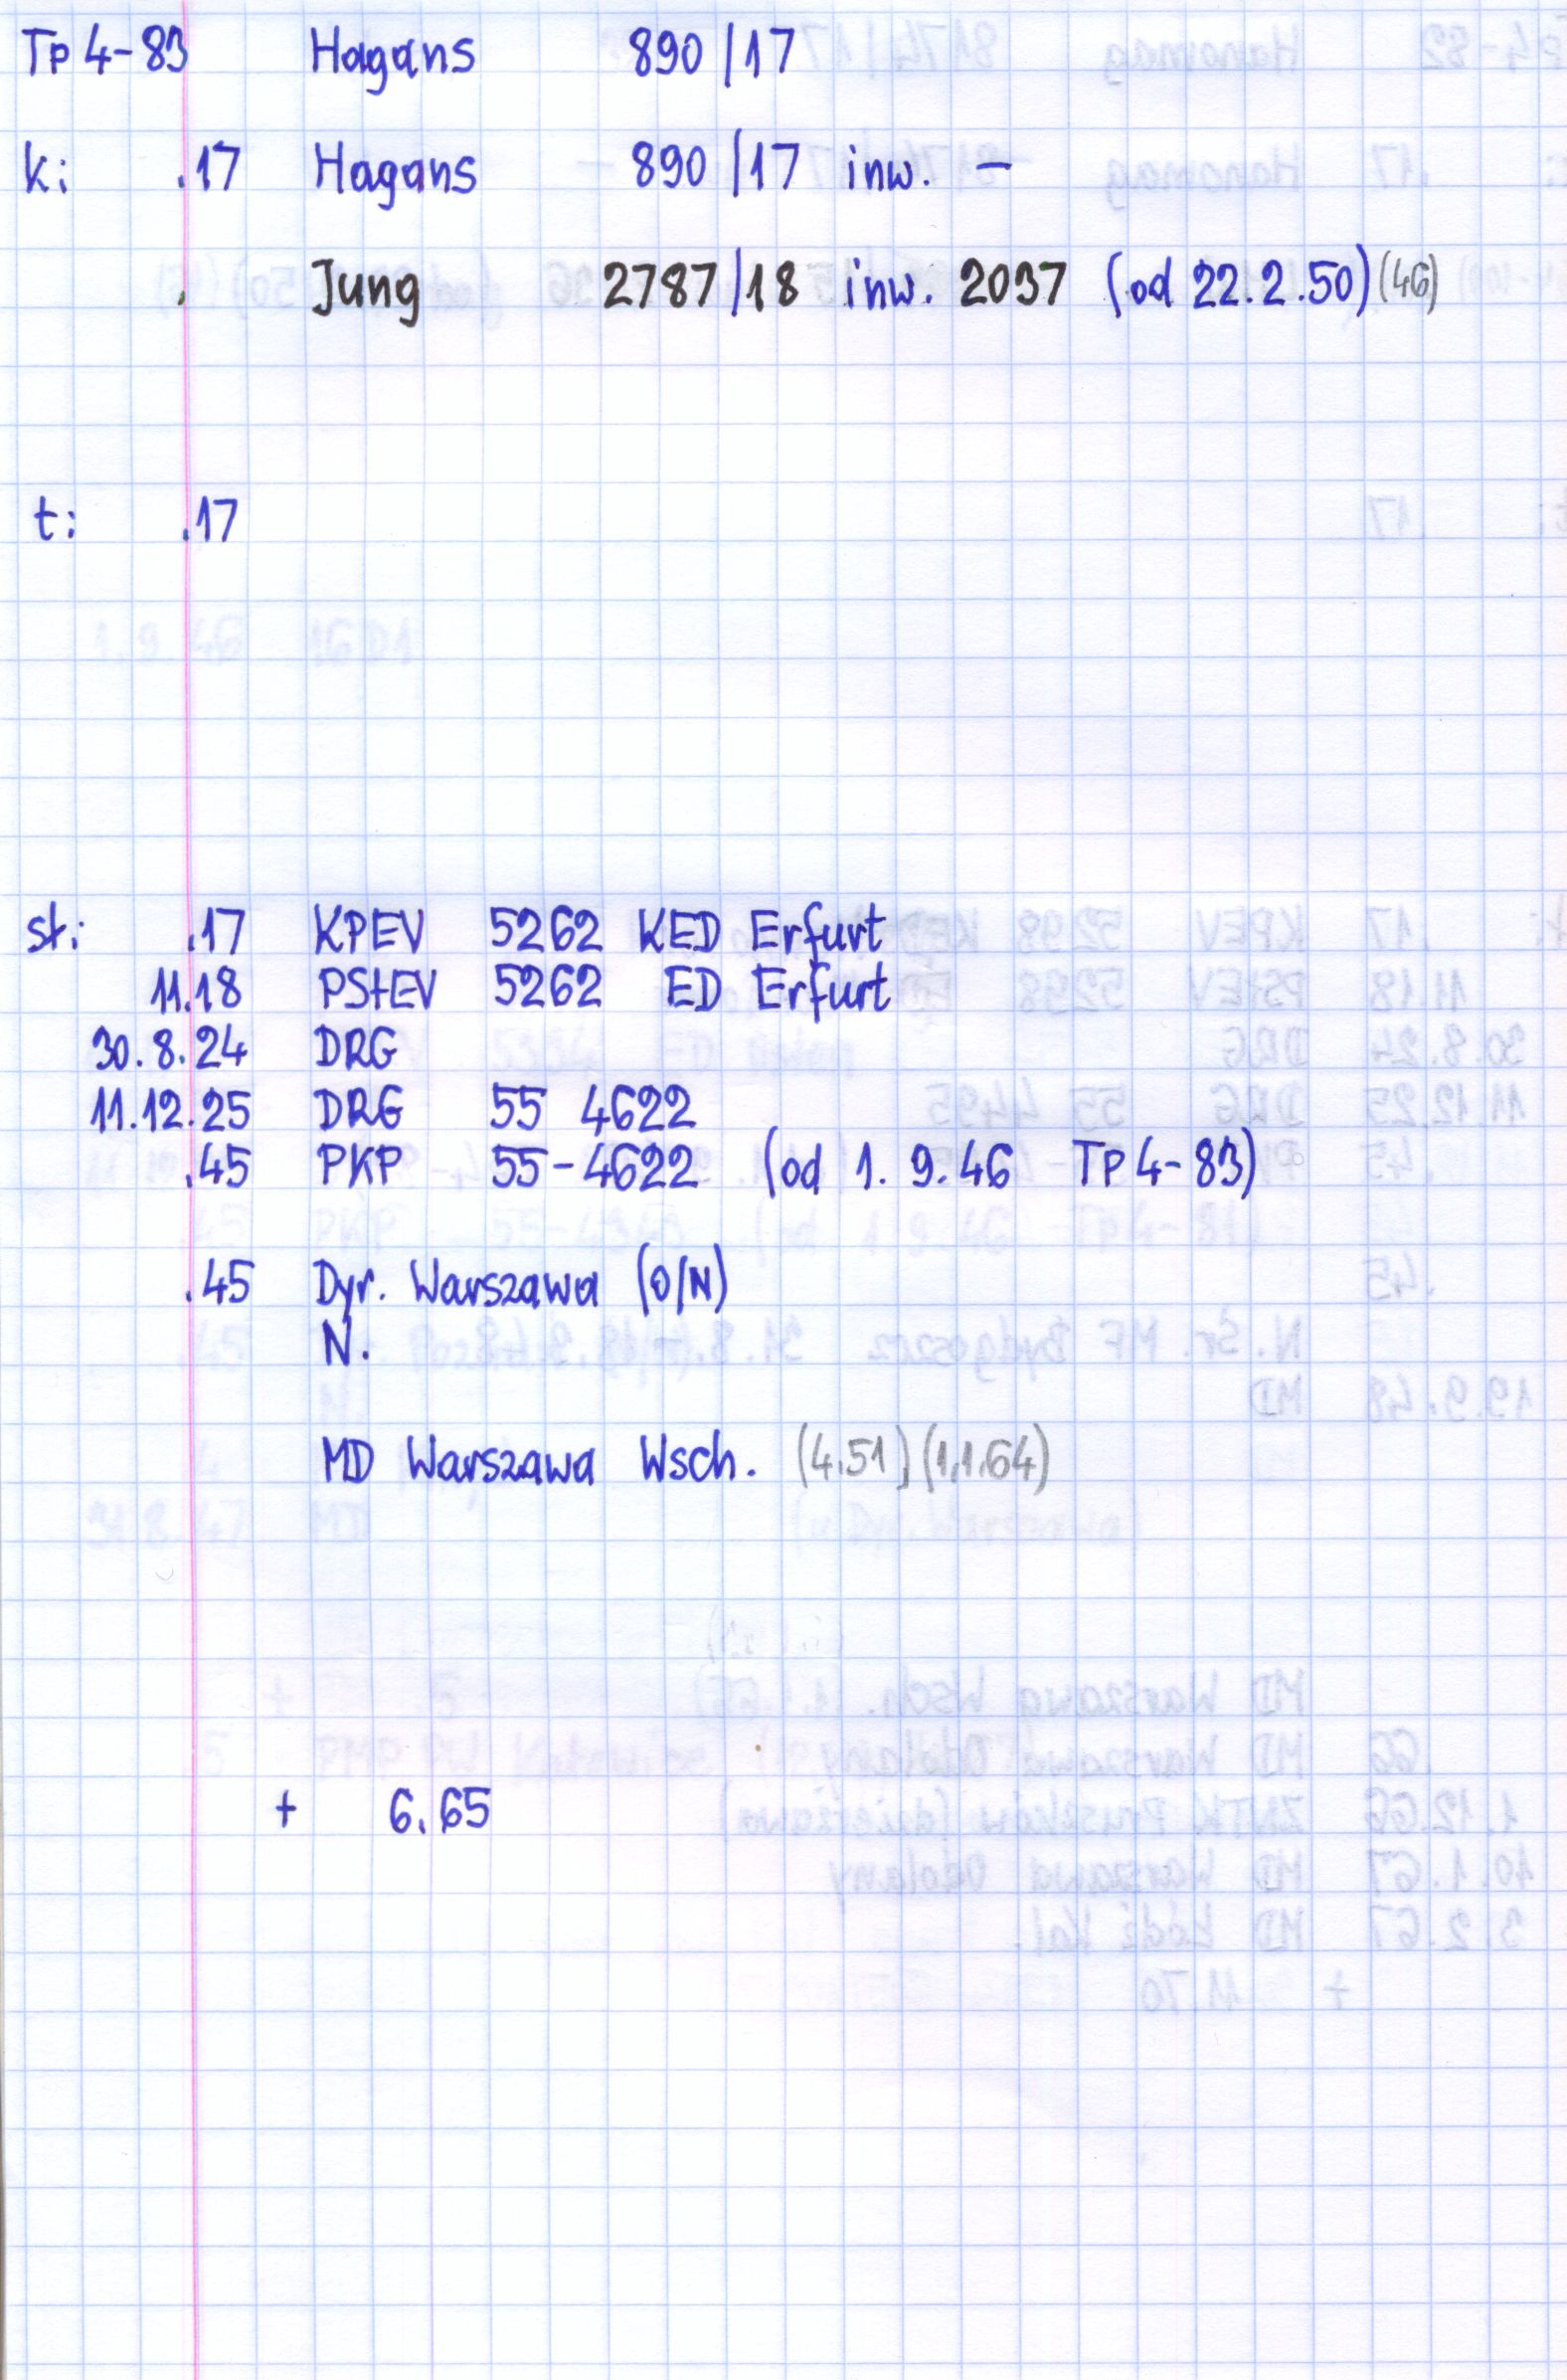 Tp 4-83 Hagans 890/17
k: .17 Hagans 890/17 inw. –
. Jung 2787/18 inw. 2037 (od 22.2.50) (46)
t: .17
st: .17 KPEV 5262 KED Erfurt
11.18 PStEV 5262 ED Erfurt
30.8.24 DRG
11.12.25 DRG 55 4622
.45 PKP 55-4622 (od 1.9.46 Tp 4-83)
.45 Dyr. Warszawa (O/N)
N.
MD Warszawa Wsch. (4.51) (1.1.64)
+ 6.65